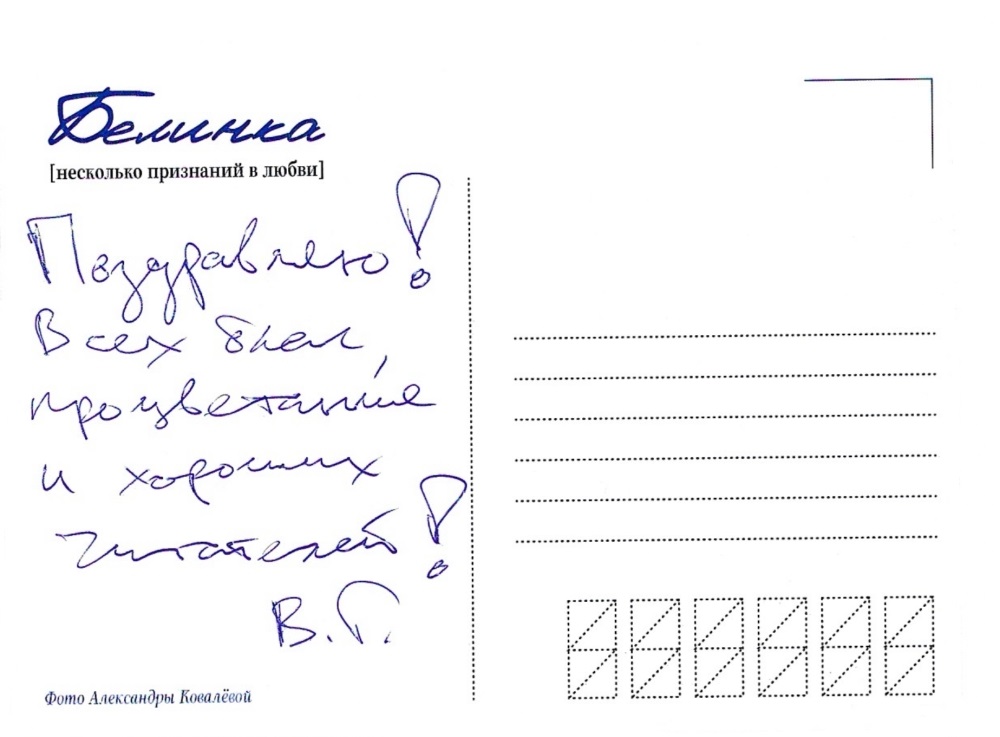 Белинка
[несколько признаний в любви]
Поздравляю!
Всех благ,
процветание
и хороших
читателей!
В.Г.
Фото Александры Ковалёвой